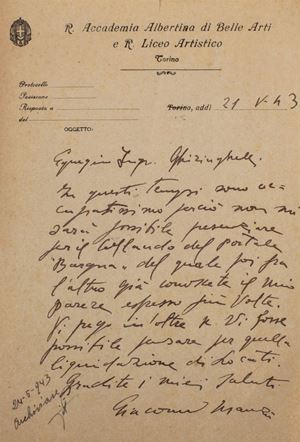 R. Accademia Albertina di Belle Arti
e R. Liceo Artistico
Torino
Protocollo
Posizione
Risposta a
del
Torino, addì 21 V-43
OGGETTO:
Egregio Ingr. Ghiringhelli.
In questi tempi sono oc-
cupatissimo perciò non mi
sarà possibile presenziare
per il collaudo del Portale
"Bargna" del quale poi fra
l'altro già conoscete il mio
parere espresso più volte.
Vi prego inoltre se Vi fosse
possibile passare per quella
liquidazione di Locati.
Gradite i miei saluti
Giacomo Manzù
24-5-943
Archiviare